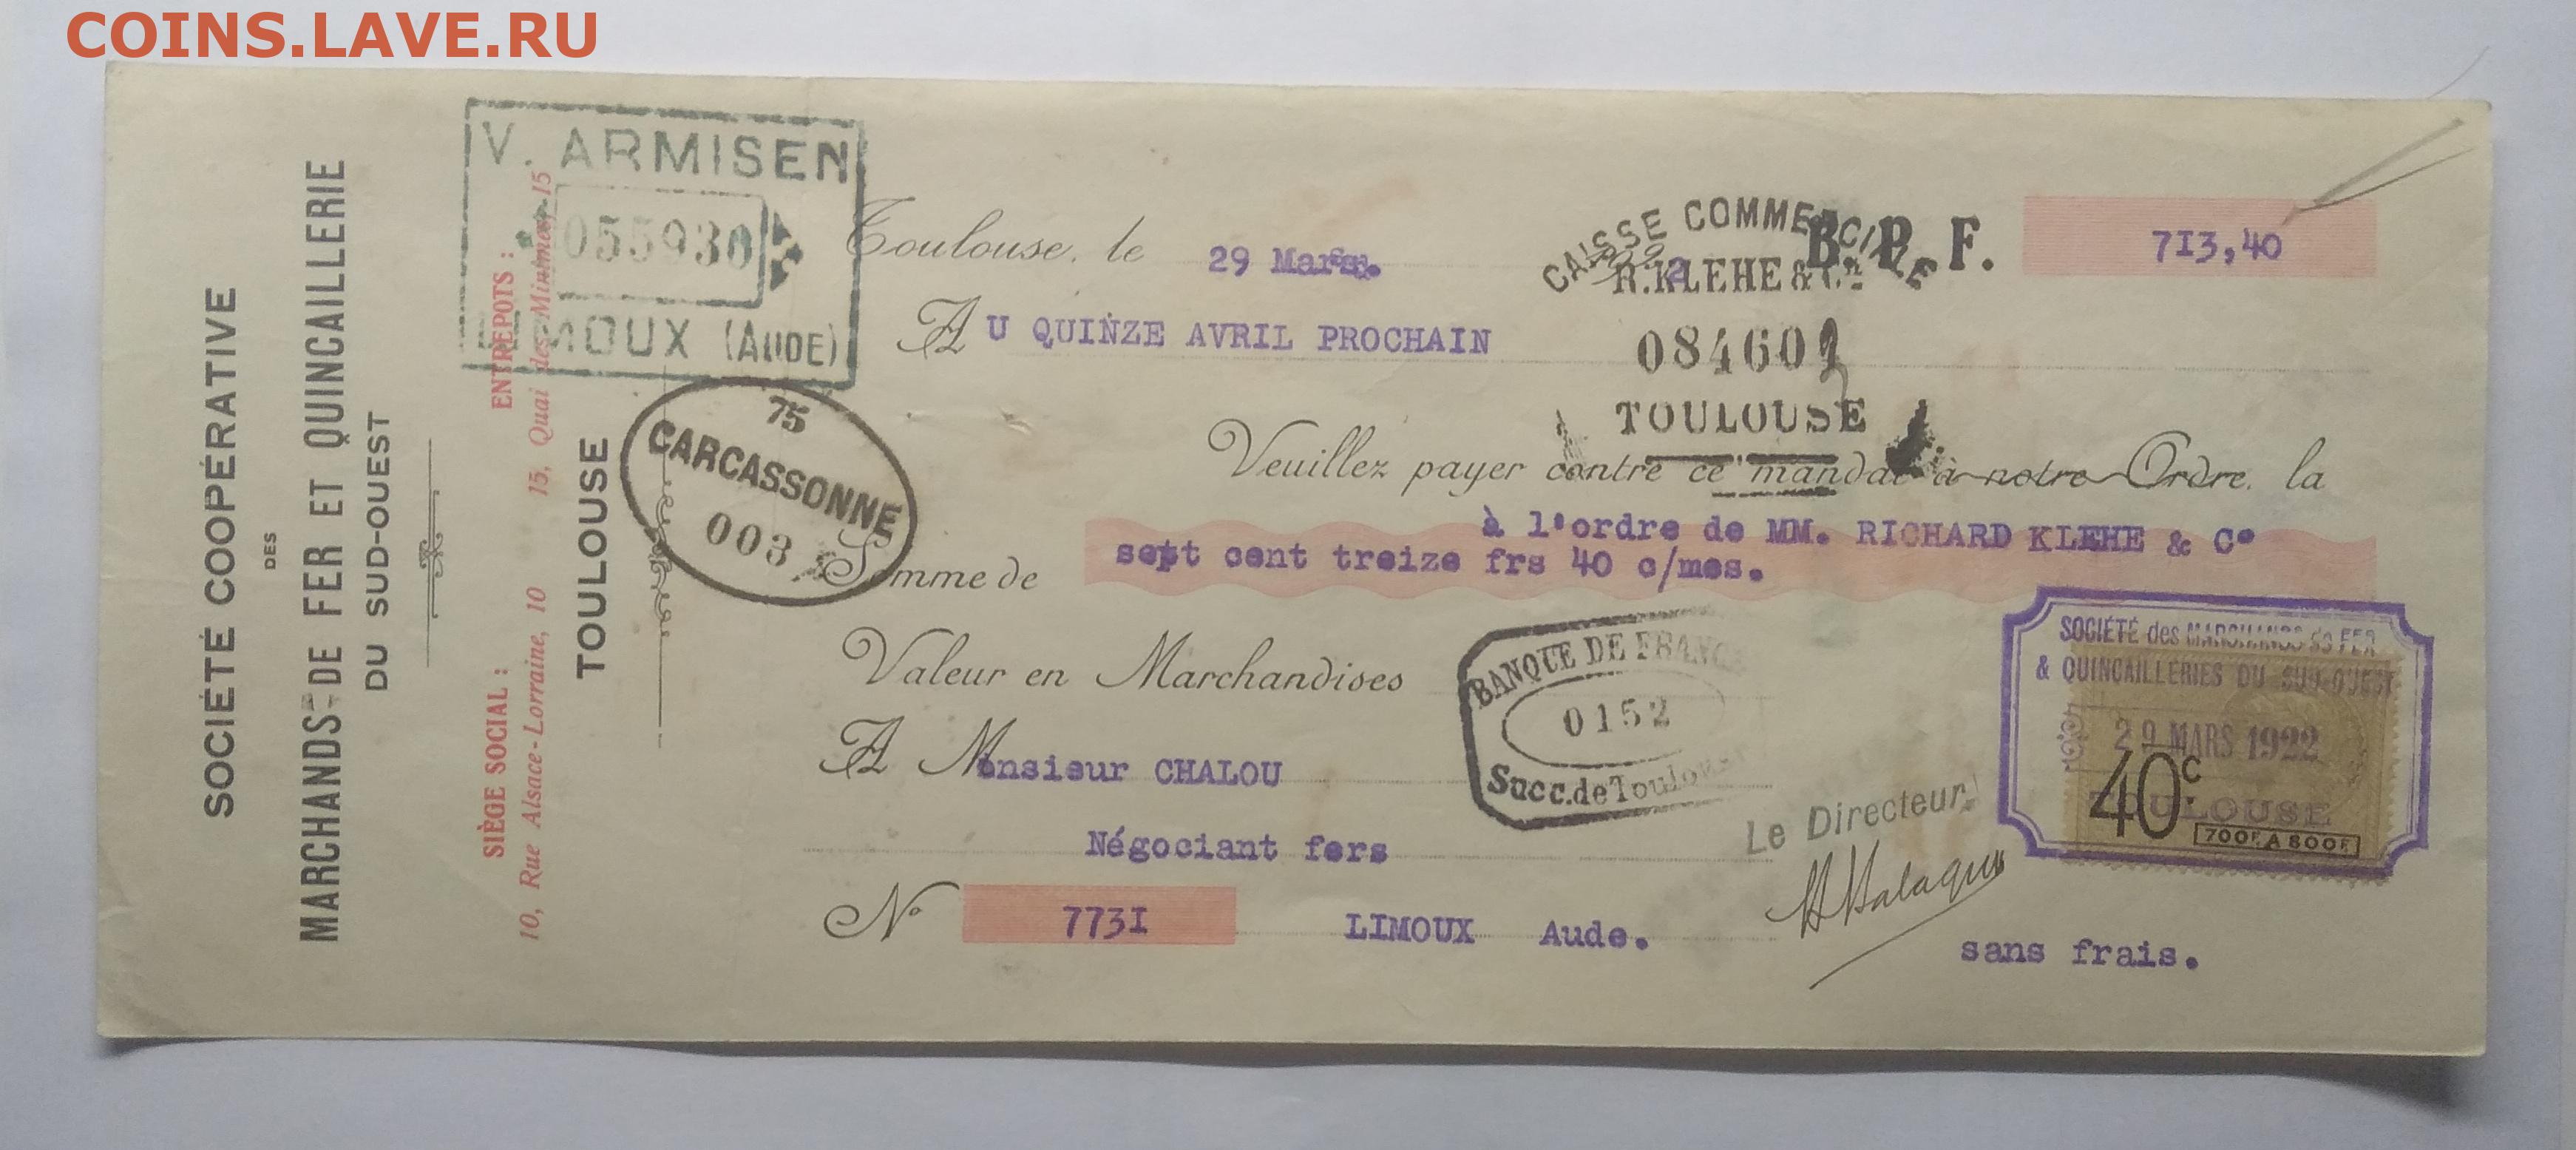 COINS.LAVE.RU
SOCIÉTÉ COOPÉRATIVE
DES
MARCHANDS DE FER ET QUINCAILLERIE
DU SUD-OUEST
SIÈGE SOCIAL :
10, Rue Alsace-Lorraine, 10
ENTREPOTS :
15, Quai des Minimes, 15
TOULOUSE
V. ARMISEN
055930
LIMOUX (AUDE)
75
CARCASSONNE
003
Toulouse, le 29 Mars
CAISSE COMMERCIALE
R. KLEHE & Cie
084601
TOULOUSE
B. P. F. 7I3,40
AU QUINZE AVRIL PROCHAIN
Veuillez payer contre ce mandat à notre Ordre, la
à l'ordre de MM. RICHARD KLEHE & C°
Somme de sept cent treize frs 40 c/mes.
Valeur en Marchandises
BANQUE DE FRANCE
0152
Succ. de Toulouse
A Monsieur CHALOU
Négociant fers
N° 773I LIMOUX Aude.
Le Directeur,
sans frais.
SOCIÉTÉ des MARCHANDS de FER
& QUINCAILLERIES DU SUD-OUEST
29 MARS 1922
TOULOUSE
40c
700F. A 800F.